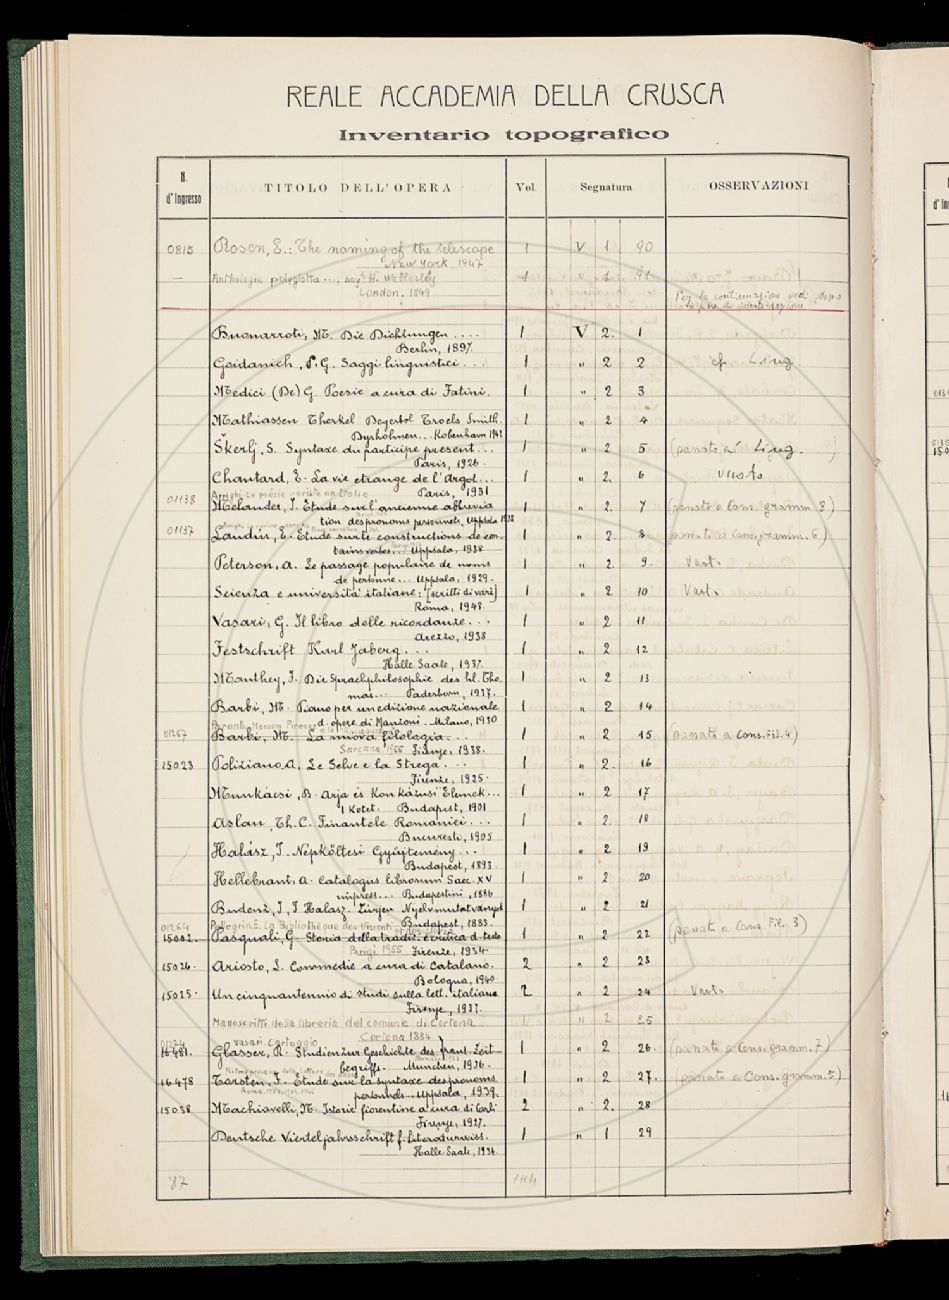 REALE ACCADEMIA DELLA CRUSCA
Inventario topografico
N. d'Ingresso TITOLO DELL'OPERA Vol. Segnatura OSSERVAZIONI
0815 Rosen, E.: The naming of the telescope 1 V 1 90
New York, 1947
— Anthologia polyglotta ..., by H. Wellesley 1 " 1 91
London, 1849
Per la continuazione vedi dopo
Buonarroti, M. Die Dichtungen .... 1 V 2. 1
Berlin, 1897.
Goidanich, P. G. Saggi linguistici ... 1 " 2 2 cf. Ling.
Medici (De) G. Poesie a cura di Fatini. 1 " 2 3
Mathiassen Therkel Troels Smith. 1 " 2 4
København 1942
Škerlj, S. Syntaxe du participe présent ... 1 " 2 5 (passato a Ling.)
Paris, 1926.
Chautard, E. La vie étrange de l'argot... 1 " 2. 6 vuoto
Paris, 1931
01138 Melander, J. Étude sur l'ancienne abrévia 1 " 2. 7 (passato a Cons. gramm. 8)
tion des pronoms personnels, Uppsala 1928
01137 Laudin, E. Étude sur le constructions de cer 1 " 2. 8 (passato a Cons. gramm. 6)
tains verbes... Uppsala, 1938
Peterson, A. Le passage populaire de noms 1 " 2. 9. Vuoto
de personne... Uppsala, 1929.
Scienza e università italiane: [scritti di vari] 1 " 2 10 Vuoto
Roma, 1948.
Vasari, G. Il libro delle ricordanze... 1 " 2 11
Arezzo, 1938
Festschrift Karl Jaberg ... 1 " 2 12
Halle Saale, 1937.
Manthey, F. Die Sprachphilosophie des hl. Tho- 1 " 2 13
mas... Paderborn, 1937.
Barbi, M. Piano per un edizione nazionale 1 " 2 14
d. opere di Manzoni. Milano, 1930
01267 Barbi, M. La nuova filologia... 1 " 2 15 (passato a Cons. Fil. 4)
Sansoni 1955 Firenze, 1938.
15023 Poliziano, A. Le Selve e la Strega ... 1 " 2. 16
Firenze, 1925.
Munkácsi, B. Arja és Kaukázusi Elemek... 1 " 2 17
I Kötet. Budapest, 1901
Aslan, Th. C. Finantele Romaniei ... 1 " 2. 18
Bucuresti, 1905
Halász, I. Népköltési Gyüjtemény ... 1 " 2 19
Budapest, 1893.
Hellebrant, A. Catalogus librorum Saec. XV 1 " 2 20
impress... Budapestini, 1886
Budenz, J., I Halasz. Zürjen Nyelvmutatványok 1 " 2 21
Budapest, 1883.
01264
15002. Pasquali, G. Storia della tradiz. e critica d. testo 1 " 2 22 (passato a Cons. Fil. 3)
Parigi 1955 Firenze, 1934.
15026. Ariosto, L. Commedie a cura di Catalano. 2 " 2 23
Bologna, 1940
15025. Un cinquantennio di studi sulla lett. italiana 2 " 2 24 Vuoto
Firenze, 1937.
Manoscritti della libreria del comune di Cortona " 2 25
Cortona 1884
01274 Vasari Carteggio
16481. Glasser, R. Studien zur Geschichte des frant. Zeit- 1 " 2 26. (passato a Cons. gramm. 7)
begriffs. München, 1936.
16478 Torsten, F. Étude sur la syntaxe des pronoms 1 " 2 27. (passato a Cons. gramm. 5)
personnels. Uppsala, 1939.
15038 Machiavelli, N. Istorie fiorentine a cura di Carli 2 " 2. 28
Firenze, 1927.
Deutsche Vierteljahrsschrift f. Literaturwiss. 1 " 1 29
Halle Saale, 1936.
87